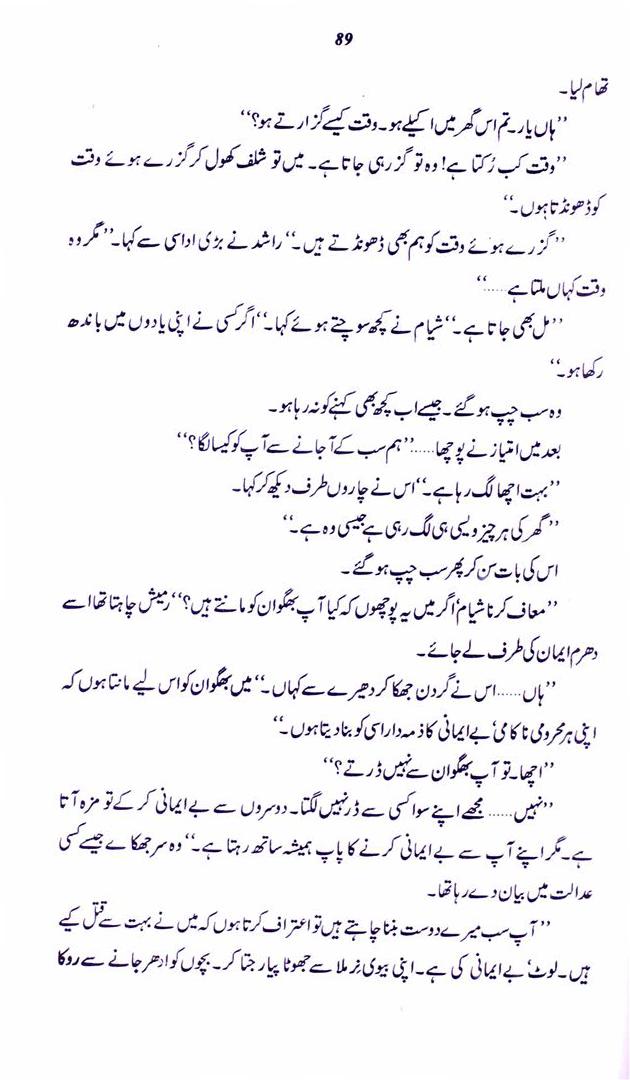 89
تھام لیا۔
’’ہاں یار۔ تم اس گھر میں اکیلے ہو۔ وقت کیسے گزارتے ہو؟‘‘
’’وقت کب رُکتا ہے! وہ تو گزر ہی جاتا ہے۔ میں تو شلف کھول کر گزرے ہوئے وقت
کو ڈھونڈتا ہوں۔‘‘
’’گزرے ہوئے وقت کو ہم بھی ڈھونڈتے ہیں۔‘‘ راشد نے بڑی اداسی سے کہا۔ ’’مگر وہ
وقت کہاں ملتا ہے.....‘‘
’’مل بھی جاتا ہے۔‘‘ شیام نے کچھ سوچتے ہوئے کہا۔ ‘‘اگر کسی نے اپنی یادوں میں باندھ
رکھا ہو۔‘‘
وہ سب چپ ہو گئے۔ جیسے اب کچھ بھی کہنے کو نہ رہا ہو۔
بعد میں امتیاز نے پوچھا......’’ہم سب کے آ جانے سے آپ کو کیسا لگا؟‘‘
’’بہت اچھا لگ رہا ہے۔‘‘ اس نے چاروں طرف دیکھ کر کہا۔
’’گھر کی ہر چیز ویسی ہی لگ رہی ہے جیسی وہ ہے۔‘‘
اس کی بات سن کر پھر سب چپ ہو گئے۔
’’معاف کرنا شیام‘ اگر میں یہ پوچھوں کہ کیا آپ بھگوان کو مانتے ہیں؟‘‘ رمیش چاہتا تھا اسے
دھرم ایمان کی طرف لے جائے۔
’’ہاں......اس نے گردن جھکا کر دھیرے سے کہاں۔‘‘ میں بھگوان کو اس لیے مانتا ہوں کہ
اپنی ہر محرومی ناکامی‘ بے ایمانی کا ذمہ دار اسی کو بنا دیتا ہوں۔‘‘
’’اچھا۔ تو آپ بھگوان سے نہیں ڈرتے؟‘‘
’’نہیں...... مجھے اپنے سوا کسی سے ڈر نہیں لگتا۔ دوسروں سے بے ایمانی کر کے تو مزہ آتا
ہے۔ مگر اپنے آپ سے بے ایمانی کرنے کا پاپ ہمیشہ ساتھ رہتا ہے۔‘‘ وہ سر جھکاے جیسے کسی
عدالت میں بیان دے رہا تھا۔
’’آپ سب میرے دوست بننا چاہتے ہیں تو اعتراف کرتا ہوں کہ میں نے بہت سے قتل کیے
ہیں۔ لوٹ‘ بے ایمانی کی ہے۔ اپنی بیوی نِرملا سے جھوٹا پیار جتا کر۔ بچوں کو ادھر جانے سے روکا